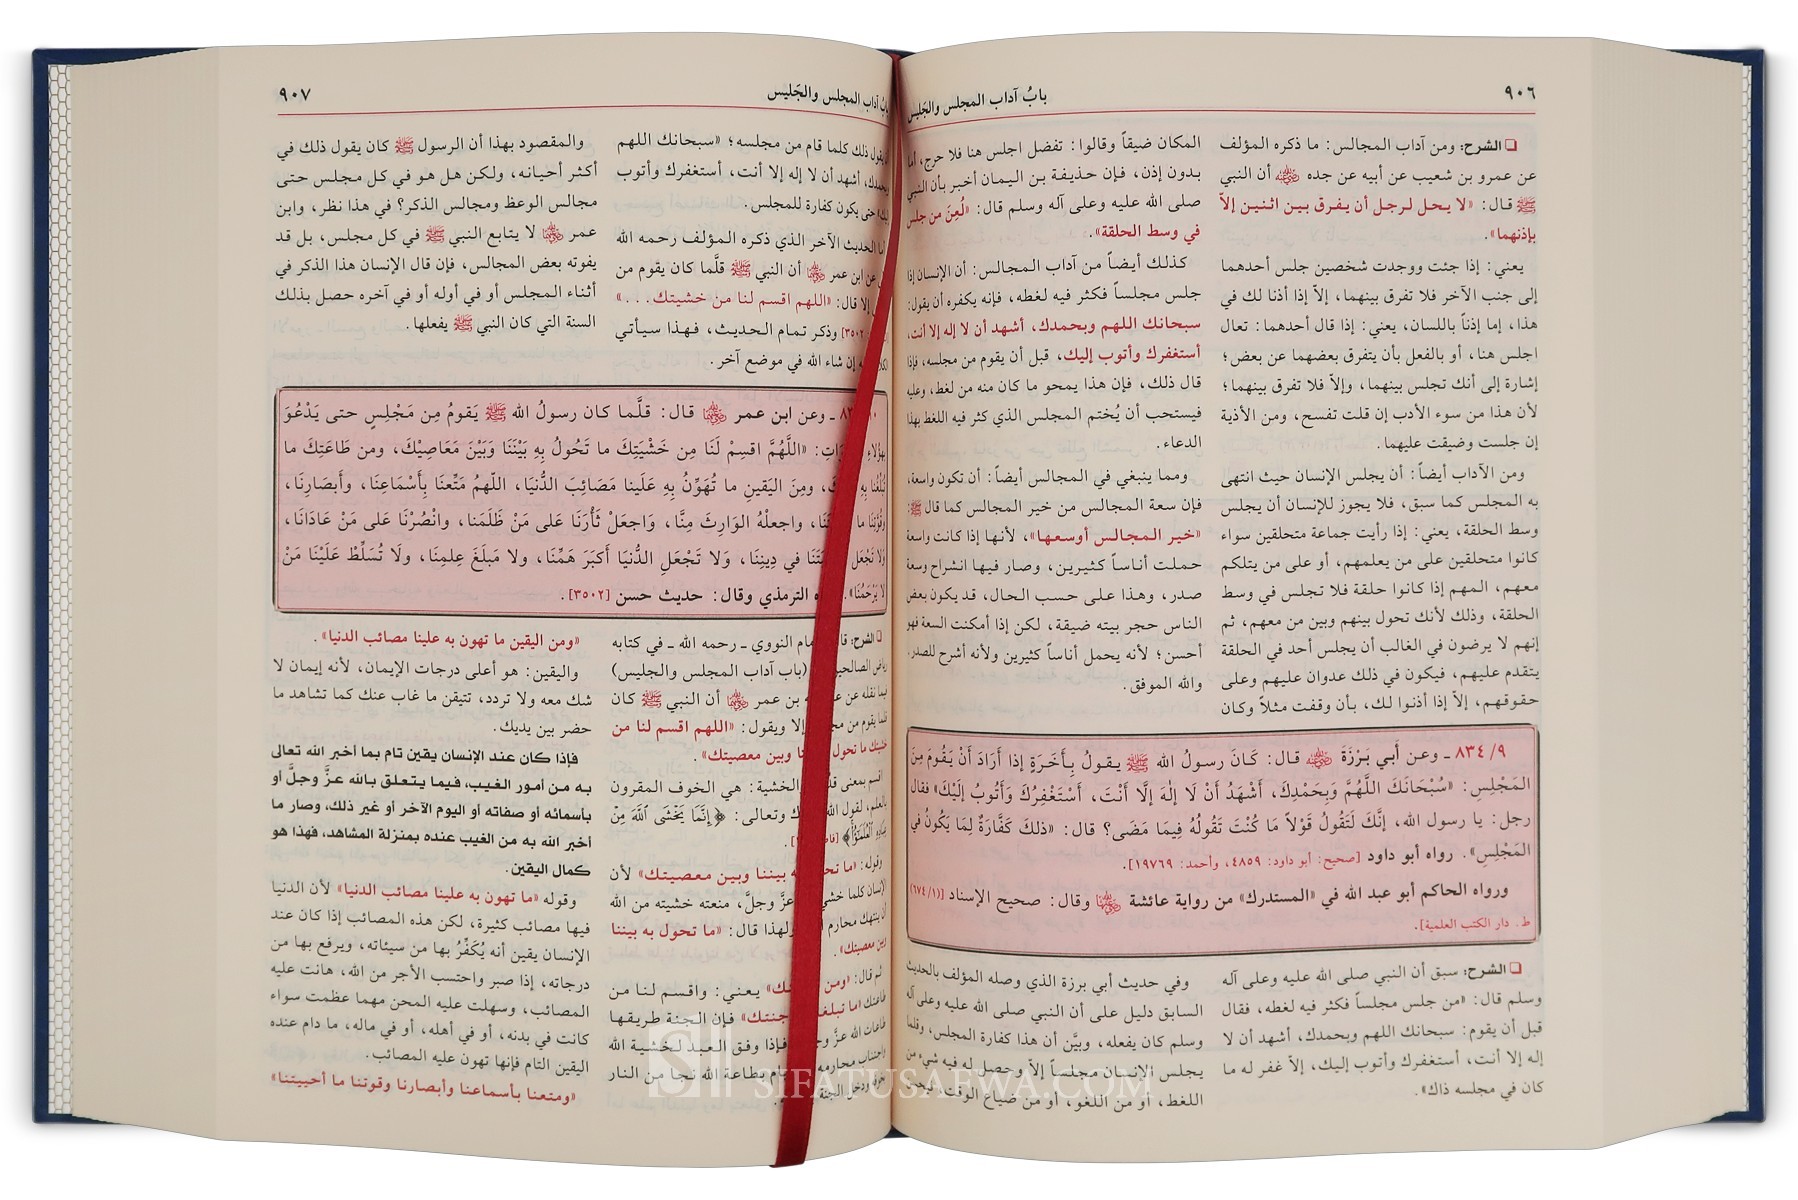 ٩٠٦
بابُ آداب المجلس والجَليس
❑ الشرح: ومن آداب المجالس: ما ذكره المؤلف
عن عمرو بن شعيب عن أبيه عن جده ﷺ أن النبي
ﷺ قال: «لا يحل لرجل أن يفرق بين اثنين إلاّ
بإذنهما».
يعني: إذا جئت ووجدت شخصين جلس أحدهما
إلى جنب الآخر فلا تفرق بينهما، إلاّ إذا أذنا لك في
هذا، إما إذناً باللسان، يعني: إذا قال أحدهما: تعال
اجلس هنا، أو بالفعل بأن يتفرق بعضهما عن بعض؛
إشارة إلى أنك تجلس بينهما، وإلاّ فلا تفرق بينهما؛
لأن هذا من سوء الأدب إن قلت تفسح، ومن الأذية
إن جلست وضيقت عليهما.
ومن الآداب أيضاً: أن يجلس الإنسان حيث انتهى
به المجلس كما سبق، فلا يجوز للإنسان أن يجلس
وسط الحلقة، يعني: إذا رأيت جماعة متحلقين سواء
كانوا متحلقين على من يعلمهم، أو على من يتلكم
معهم، المهم إذا كانوا حلقة فلا تجلس في وسط
الحلقة، وذلك لأنك تحول بينهم وبين من معهم، ثم
إنهم لا يرضون في الغالب أن يجلس أحد في الحلقة
يتقدم عليهم، فيكون في ذلك عدوان عليهم وعلى
حقوقهم، إلاّ إذا أذنوا لك، بأن وقفت مثلاً وكان
المكان ضيقاً وقالوا: تفضل اجلس هنا فلا حرج، أما
بدون إذن، فإن حذيفة بن اليمان أخبر بأن النبي
صلى الله عليه وعلى آله وسلم قال: «لُعِنَ من جلس
في وسط الحلقة».
كذلك أيضاً من آداب المجالس: أن الإنسان إذا
جلس مجلساً فكثر فيه لغطه، فإنه يكفره أن يقول:
سبحانك اللهم وبحمدك، أشهد أن لا إله إلا أنت،
أستغفرك وأتوب إليك، قبل أن يقوم من مجلسه، فإذا
قال ذلك، فإن هذا يمحو ما كان منه من لغط، وعليه
فيستحب أن يُختم المجلس الذي كثر فيه اللغط بهذا
الدعاء.
ومما ينبغي في المجالس أيضاً: أن تكون واسعة،
فإن سعة المجالس من خير المجالس كما قال ﷺ:
«خير المجالس أوسعها»، لأنها إذا كانت واسعة
حملت أناساً كثيرين، وصار فيها انشراح وسعة
صدر، وهذا على حسب الحال، قد يكون بعض
الناس حجر بيته ضيقة، لكن إذا أمكنت السعة فهو
أحسن؛ لأنه يحمل أناساً كثيرين ولأنه أشرح للصدر.
والله الموفق.
٨٣٤/٩ ـ وعن أبي بَرْزَةَ قال: كَانَ رسولُ الله ﷺ يقولُ بِأَخَرَةٍ إذا أرَادَ أنْ يَقُومَ مِنَ
المَجْلِسِ: «سُبْحَانَكَ اللَّهُمَّ وَبِحَمْدِكَ، أشْهَدُ أنْ لَا إلهَ إلَّا أنْتَ، أسْتَغْفِرُكَ وَأتُوبُ إلَيْكَ» فقال
رجل: يا رسول الله، إنَّكَ لَتَقُولُ قَوْلاً مَا كُنْتَ تَقُولُهُ فِيمَا مَضَى؟ قال: «ذلكَ كَفَّارَةٌ لِمَا يَكُونُ في
المَجْلِسِ». رواه أبو داود [صحيح: أبو داود: ٤٨٥٩، وأحمد: ١٩٧٦٩].
ورواه الحاكم أبو عبد الله في «المستدرك» من رواية عائشة وقال: صحيح الإسناد [(٦٧٤/١)
ط. دار الكتب العلمية].
❑ الشرح: سبق أن النبي صلى الله عليه وعلى آله
وسلم قال: «من جلس مجلساً فكثر فيه لغطه، فقال
قبل أن يقوم: سبحانك اللهم وبحمدك، أشهد أن لا
إله إلا أنت، أستغفرك وأتوب إليك، إلاّ غفر له ما
كان في مجلسه ذاك».
وفي حديث أبي برزة الذي وصله المؤلف بالحديث
السابق دليل على أن النبي صلى الله عليه وعلى آله
وسلم كان يفعله، وبيَّن أن هذا كفارة المجلس، وقلما
يجلس الإنسان مجلساً إلاّ وحصل له فيه شيء من
اللغط، أو من اللغو، أو من ضياع الوقت، فيحسن
٩٠٧
بابُ آداب المجلس والجَليس
أن يقول ذلك كلما قام من مجلسه؛ «سبحانك اللهم
وبحمدك، أشهد أن لا إله إلا أنت، أستغفرك وأتوب
إليك» حتى يكون كفارة للمجلس.
أما الحديث الآخر الذي ذكره المؤلف رحمه الله
عن ابن عمر أن النبي ﷺ قلَّما كان يقوم من
إلا قال: «اللهم اقسم لنا من خشيتك...»
[٣٥٠٢] وذكر تمام الحديث، فهذا سيأتي
إن شاء الله في موضع آخر.
والمقصود بهذا أن الرسول ﷺ كان يقول ذلك في
أكثر أحيانه، ولكن هل هو في كل مجلس حتى
مجالس الوعظ ومجالس الذكر؟ في هذا نظر، وابن
عمر لا يتابع النبي ﷺ في كل مجلس، بل قد
يفوته بعض المجالس، فإن قال الإنسان هذا الذكر في
أثناء المجلس أو في أوله أو في آخره حصل بذلك
السنة التي كان النبي ﷺ يفعلها.
ـ وعن ابن عمر قال: قلَّما كان رسولُ الله ﷺ يَقومُ مِن مَجْلِسٍ حتى يَدْعُوَ
بهؤلاءِ: «اللَّهُمَّ اقسِمْ لَنَا مِن خَشْيَتِكَ ما تَحُولُ بِهِ بَيْنَنَا وَبَيْنَ مَعَاصِيْكَ، ومن طَاعَتِكَ ما
تُبَلِّغُنَا بِهِ، ومِنَ اليَقينِ ما تُهَوِّنُ بِهِ عَلَينا مَصَائِبَ الدُّنيَا، اللّهمَّ مَتِّعنَا بِأَسْمَاعِنَا، وأبصَارِنَا،
وقُوَّتِنَا ما، واجعلْهُ الوَارِثَ مِنَّا، وَاجعَلْ ثَأْرَنَا عَلى مَنْ ظَلَمَنا، وانْصُرْنَا عَلى مَنْ عَادَانَا،
ولا تَجْعَلْ في دِينِنَا، وَلا تَجْعَلِ الدُّنيَا أكبَرَ هَمِّنَا، ولا مَبلَغَ عِلمِنَا، ولَا تُسَلِّطْ عَلَيْنَا مَنْ
لا يَرْحَمُنَا». الترمذي وقال: حديث حسن [٣٥٠٢].
❑ الشرح: النووي ـ رحمه الله ـ في كتابه
رياض (باب آداب المجلس والجليس)
فيما نقله عن بن عمر أن النبي ﷺ كان
قلما يقوم من إلا ويقول: «اللهم اقسم لنا من
خشيتك ما تحول وبين معصيتك».
اقسم بمعنى الخشية: هي الخوف المقرون
بالعلم، لقول الله وتعالى: ﴿إِنَّمَا يَخْشَى ٱللَّهَ مِنْ
عِبَادِهِ ٱلْعُلَمَٰٓؤُا۟﴾
وقوله: «ما بيننا وبين معصيتك» لأن
الإنسان كلما عزَّ وجلَّ، منعته خشيته من الله
أن ينتهك محارم ولهذا قال: «ما تحول به بيننا
وبين معصيتك».
ثم قال: «ومن يعني: واقسم لنا من
طاعتك «ما جنتك» فإن الجنة طريقها
طاعات الله عزَّ فإذا وفق العبد لخشية الله
واجتناب محارمه بطاعة الله نجا من النار
«ومن اليقين ما تهون به علينا مصائب الدنيا».
واليقين: هو أعلى درجات الإيمان، لأنه إيمان لا
شك معه ولا تردد، تتيقن ما غاب عنك كما تشاهد ما
حضر بين يديك.
فإذا كان عند الإنسان يقين تام بما أخبر الله تعالى
به من أمور الغيب، فيما يتعلق بالله عزَّ وجلَّ أو
بأسمائه أو صفاته أو اليوم الآخر أو غير ذلك، وصار ما
أخبر الله به من الغيب عنده بمنزلة المشاهد، فهذا هو
كمال اليقين.
وقوله «ما تهون به علينا مصائب الدنيا» لأن الدنيا
فيها مصائب كثيرة، لكن هذه المصائب إذا كان عند
الإنسان يقين أنه يُكَفِّرُ بها من سيئاته، ويرفع بها من
درجاته، إذا صبر واحتسب الأجر من الله، هانت عليه
المصائب، وسهلت عليه المحن مهما عظمت سواء
كانت في بدنه، أو في أهله، أو في ماله، ما دام عنده
اليقين التام فإنها تهون عليه المصائب.
«ومتعنا بأسماعنا وأبصارنا وقوتنا ما أحييتنا»
SIFATUSAFWA.COM